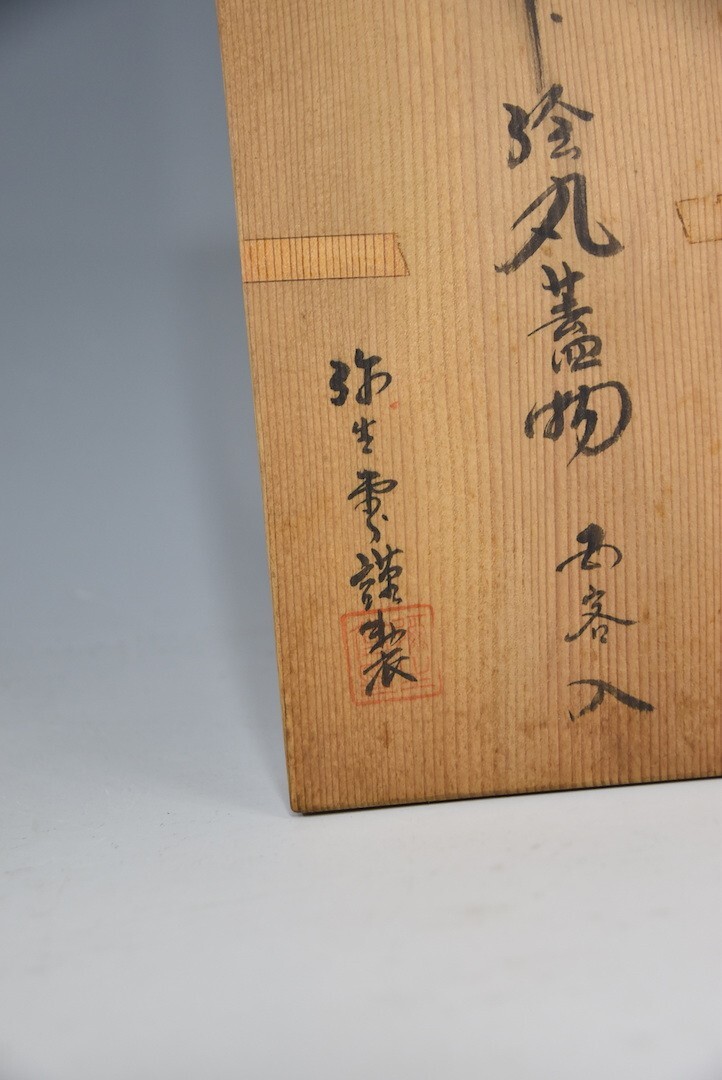 絵丸蓋物 五客入
弥生雲謹製